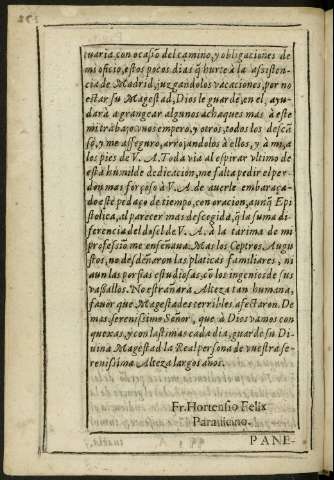 tuaria, con ocasiõ del camino, y obligaciones de
mi oficio, estos pocos dias q̃ hurtè à la assisten-
cia de Madrid, juzgandolos vacaciones, por no
estar su Magestad, Dios le guarde, en el, ayu-
darà a grangear algunos achaques mas à este
mi trabajo, vuos empero, y otros, todos los descã
sò, y me asseguro, arrojandolos à ellos, y à mi, a
los pies de V. A. Toda via al espirar vltimo de
està humilde dedicaciòn, me falta pedir el per-
don mas forçoso à V. A. de auerle embaraça-
do este pedaço de tiempo, con oracion, aunq̃ Epi
stolica, al parecer mas descogida, q̃ la suma di-
ferencia del dosel de V. A. à la tarima de mi
professiõ me enseñaua. Mas los Ceptros Augu
stos, no desdeñaron las platicas familiares, ni
aun las porfias estudiosas, cõ los ingenios de sus
vassallos. No estrañarà Alteza tan humana,
fauor que Magestades terribles afectaron. De
mas, serenissimo Señor, que à Dios vamos con
quexas, y con lastimas cada dia, guarde su Di-
uina Magestad la Real persona de vuestra se-
renissima Alteza largos años.
Fr. Hortensio Felix
Parauicino.
PANE-